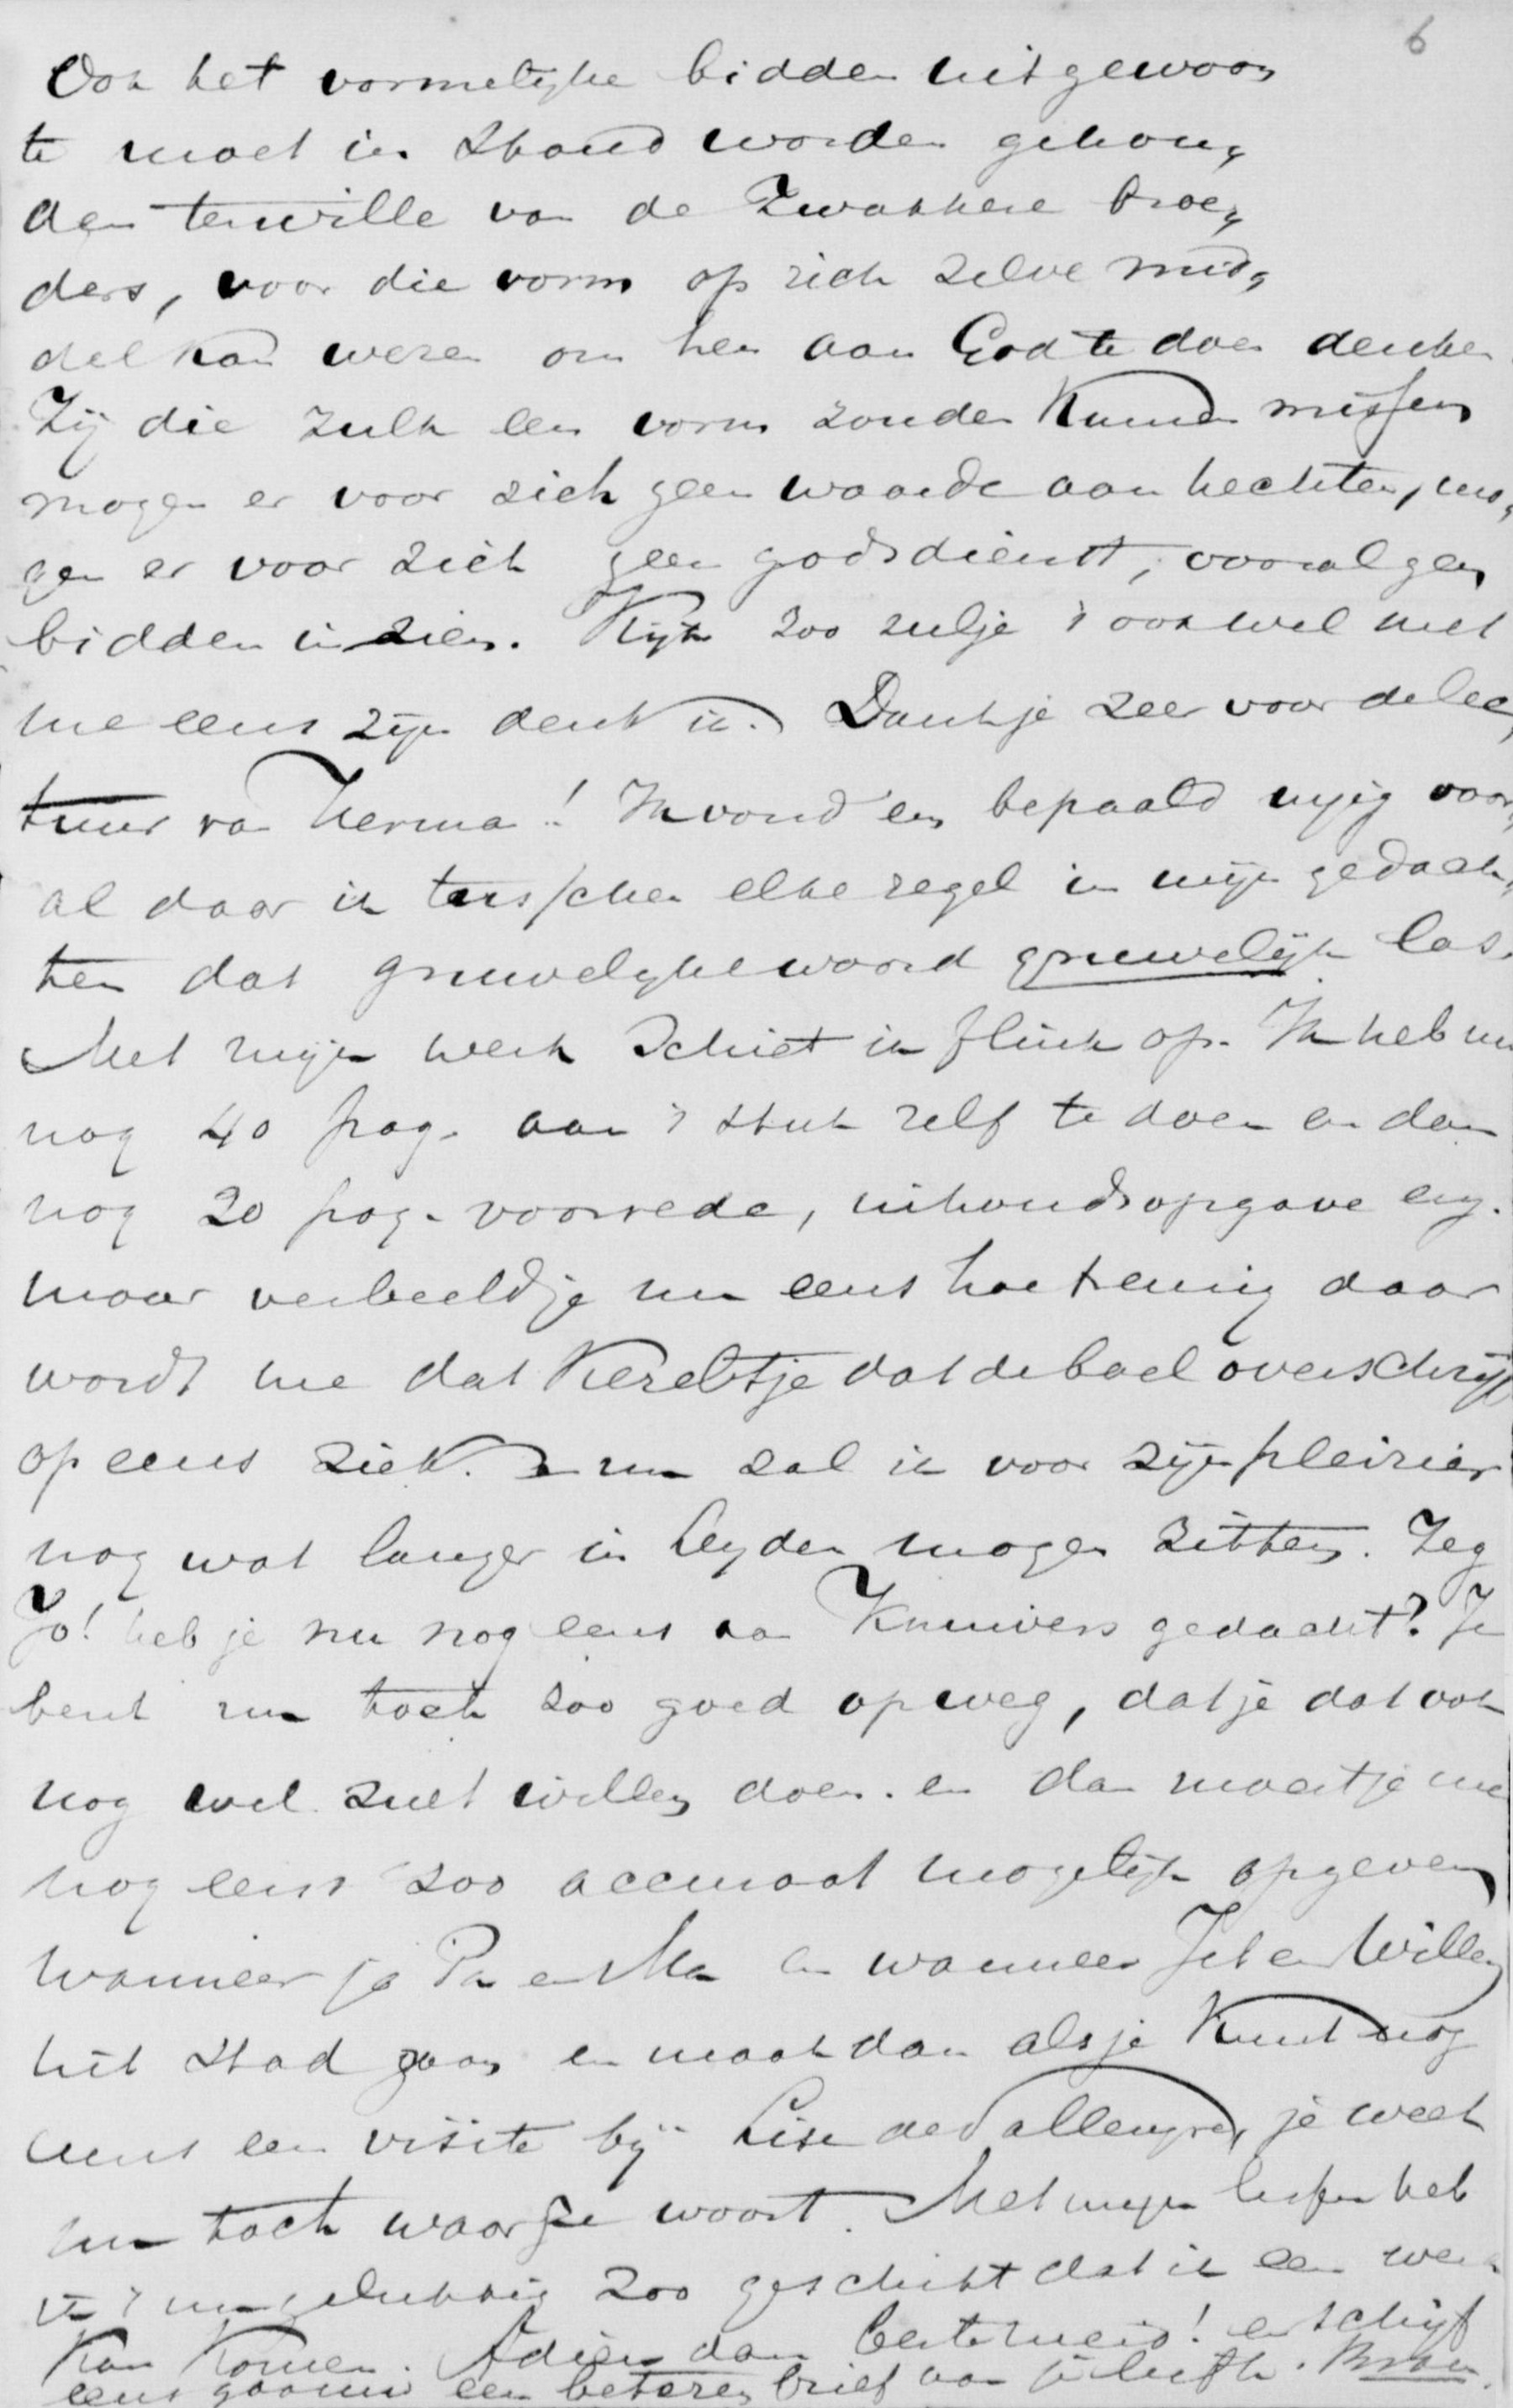 6
Ook het vormelijke bidden uit gewoon„
te moet in stand worden gehou„
den terwille van de zwakkere broe„
ders, voor die vorm op zich zelve mid„
del kan wezen om hen aan God te doen denken.
Zij die zulk een vorm zouden kunnen missen
mogen er voor zich geen waarde aan hechten, mo„
gen er voor zich geen godsdienst, vooral geen
bidden in zien. Kijk zoo zulje 't ook wel met
me eens zijn denk ik. Dankje zeer voor de lec„
tuur van Herma! Ik vond en bepaald nijig voor„
al daar ik tusschen elke regel in mijn gedach„
ten dat gruwelijke woord gruwelijk las.
Met mijn werk schiet ik flink op. Ik heb nu
nog 40 pag. aan 't stuk zelf te doen en dan
nog 20 pag. voorrede, inhoudsopgave enz.
maar verbeeldje nu eens hoe lenig daar
wordt me dat kereltje dat de boel overschrijft
opeens ziek. En nu zal ik voor zijn pleizier
nog wat langer in Leyden mogen zitten. Zeg
Jo! heb je nu nog eens aan Knuivers gedacht? Je
bent nu toch zoo goed op weg, dat je dat ook
nog wel zult willen doen. en dan moetje me
nog eens zoo accuraat mogelijk opgeven
wanneer je Pa en Ma en wanneer Jet en Willem
uit stad gaan en maak dan als je kunt nog
eens een visite bij Lise de Vallengre, je weet
nu toch waar ze woont. Met mijn lessen heb
ik 't nu gelukkig zoo geschikt dat ik een week
kan komen. Adieu dan beste meid! en schrijf
eens gauw een beteren brief aan je liefh. Bram.